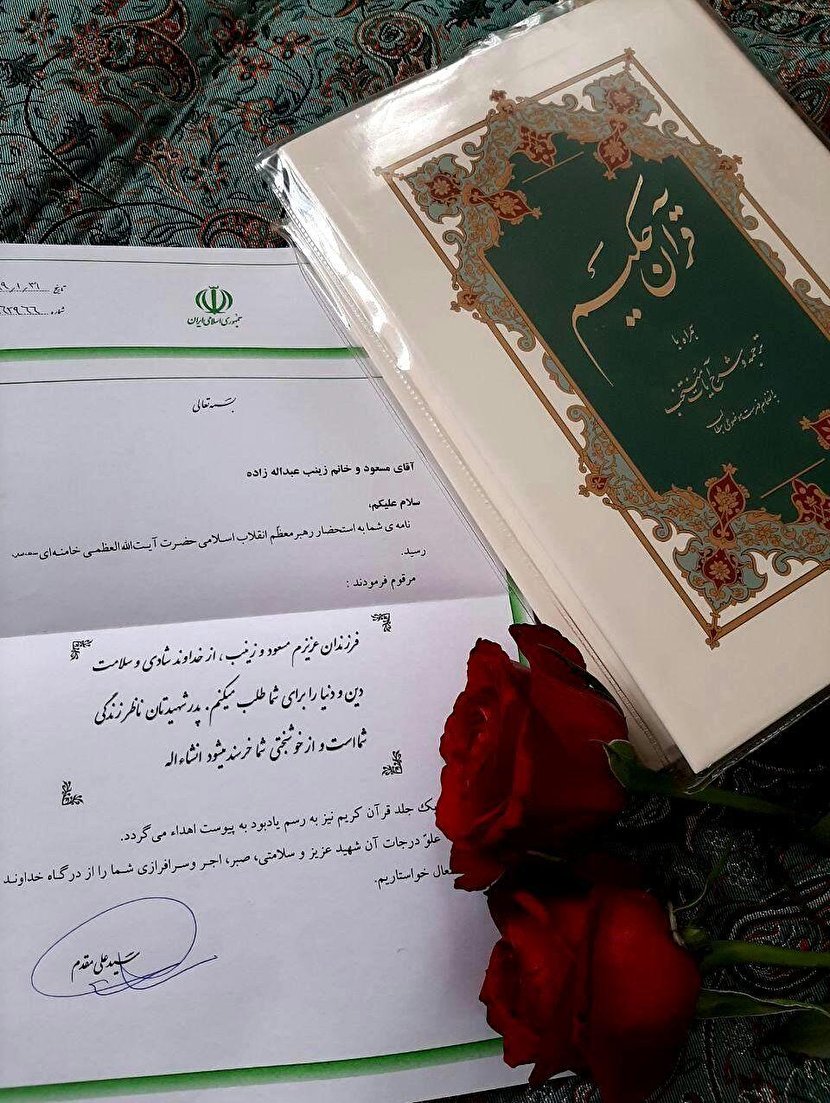 قرآن حکیم
همراه با
ترجمه و شرح آیات منتخب
تاریخ
شماره
جمهوری اسلامی ایران
بسمه تعالی
آقای مسعود و خانم زینب عبداله زاده
سلام علیکم،
نامه‌ی شما به استحضار رهبر معظّم انقلاب اسلامی حضرت آیت‌الله‌العظمی خامنه‌ای
رسید.
مرقوم فرمودند :
فرزندان عزیزم مسعود و زینب، از خداوند شادی و سلامت
دین و دنیا را برای شما طلب میکنم. پدر شهیدتان ناظر زندگی
شما است و از خوشبختی شما خرسند میشود انشاءاله
یک جلد قرآن کریم نیز به رسم یادبود به پیوست اهداء می‌گردد.
علوّ درجات آن شهید عزیز و سلامتی، صبر، اجر و سرافرازی شما را از درگاه خداوند
خواستاریم.
سید علی مقدم